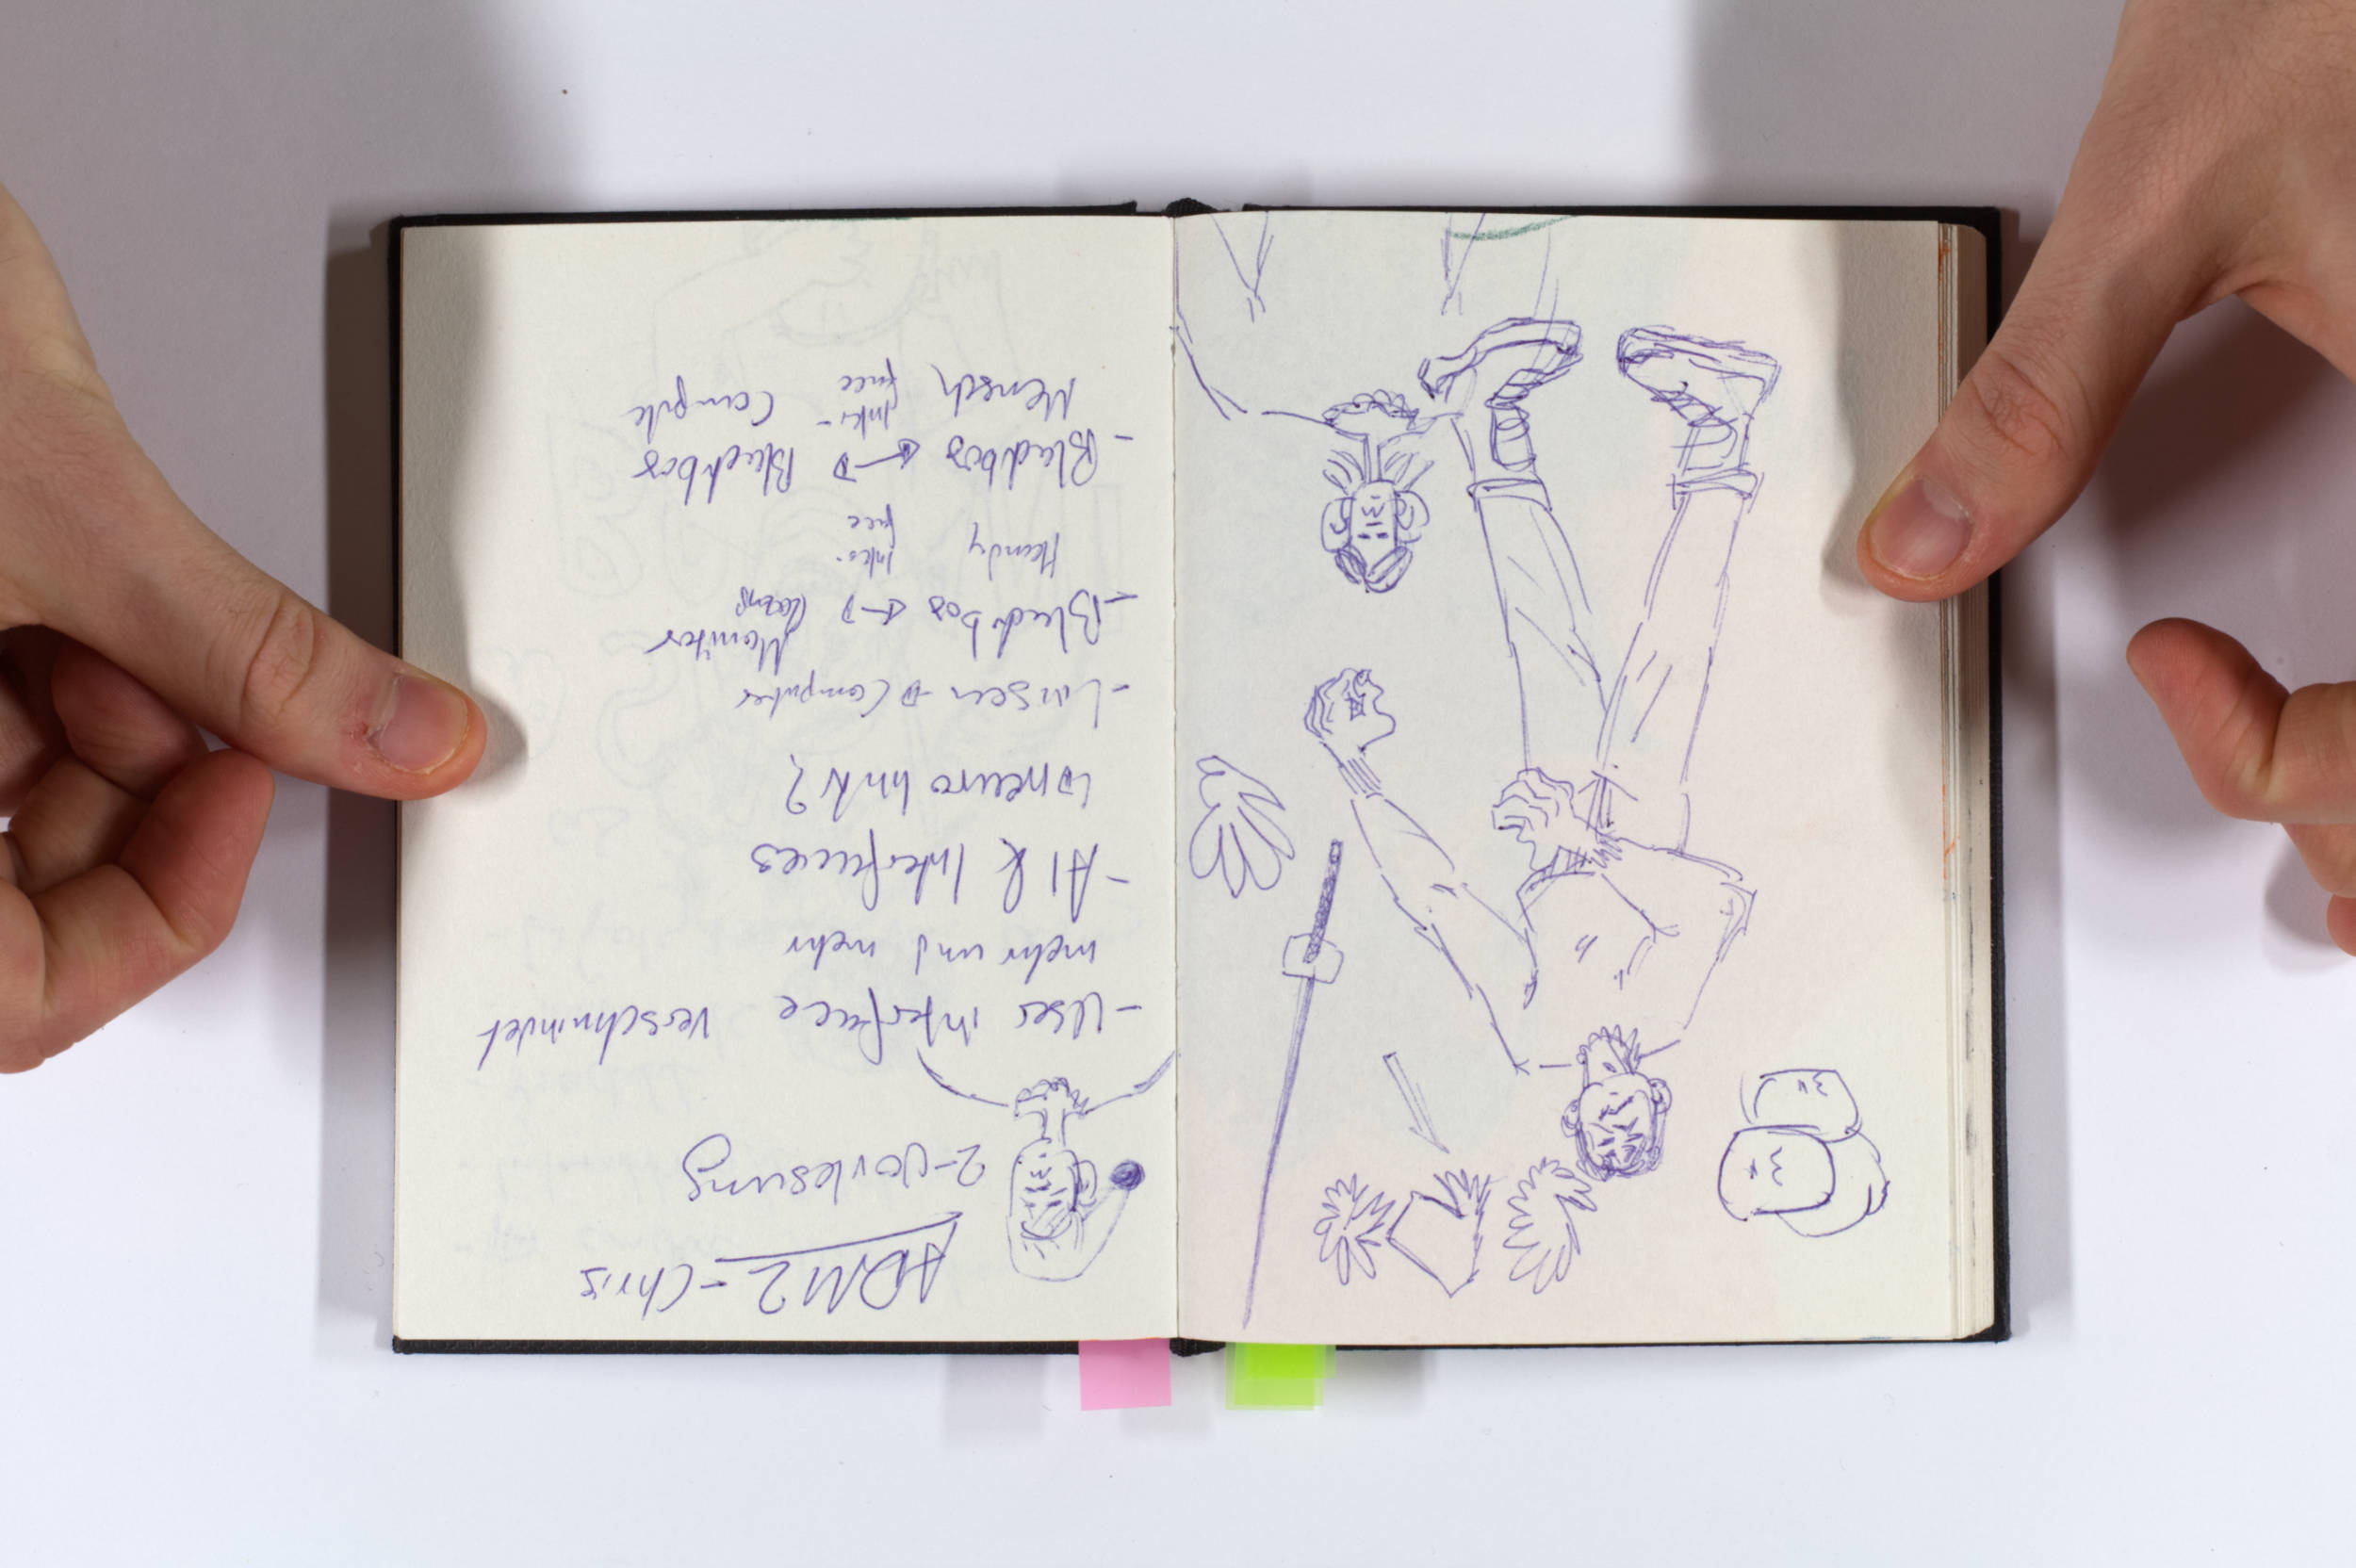 ADM2 - Chris
2-Vorlesung
- User interface verschwindet
mehr und mehr
- AI & Interfaces
↳ neurolink?
- Linsen → Computer
Monitor
- Blackbox ↔
Handy Inter-
face
- Blackbox ↔ Blackbox
Mensch Inter-
face